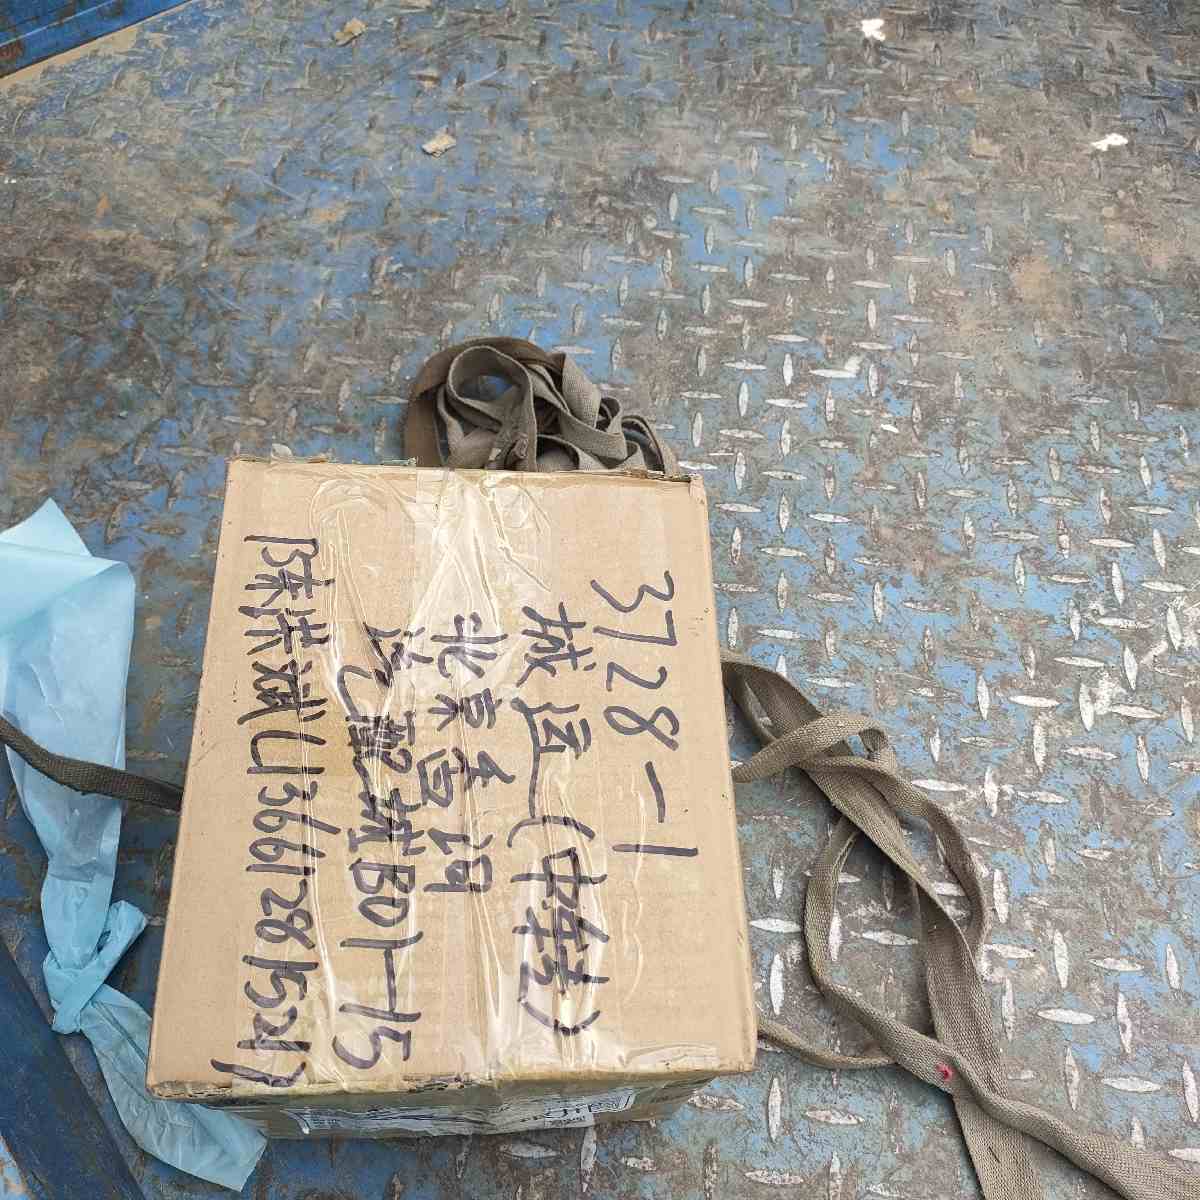 3728-1
城运(中转)
北京全时
汽配城B01-15
陈洪斌13661281521